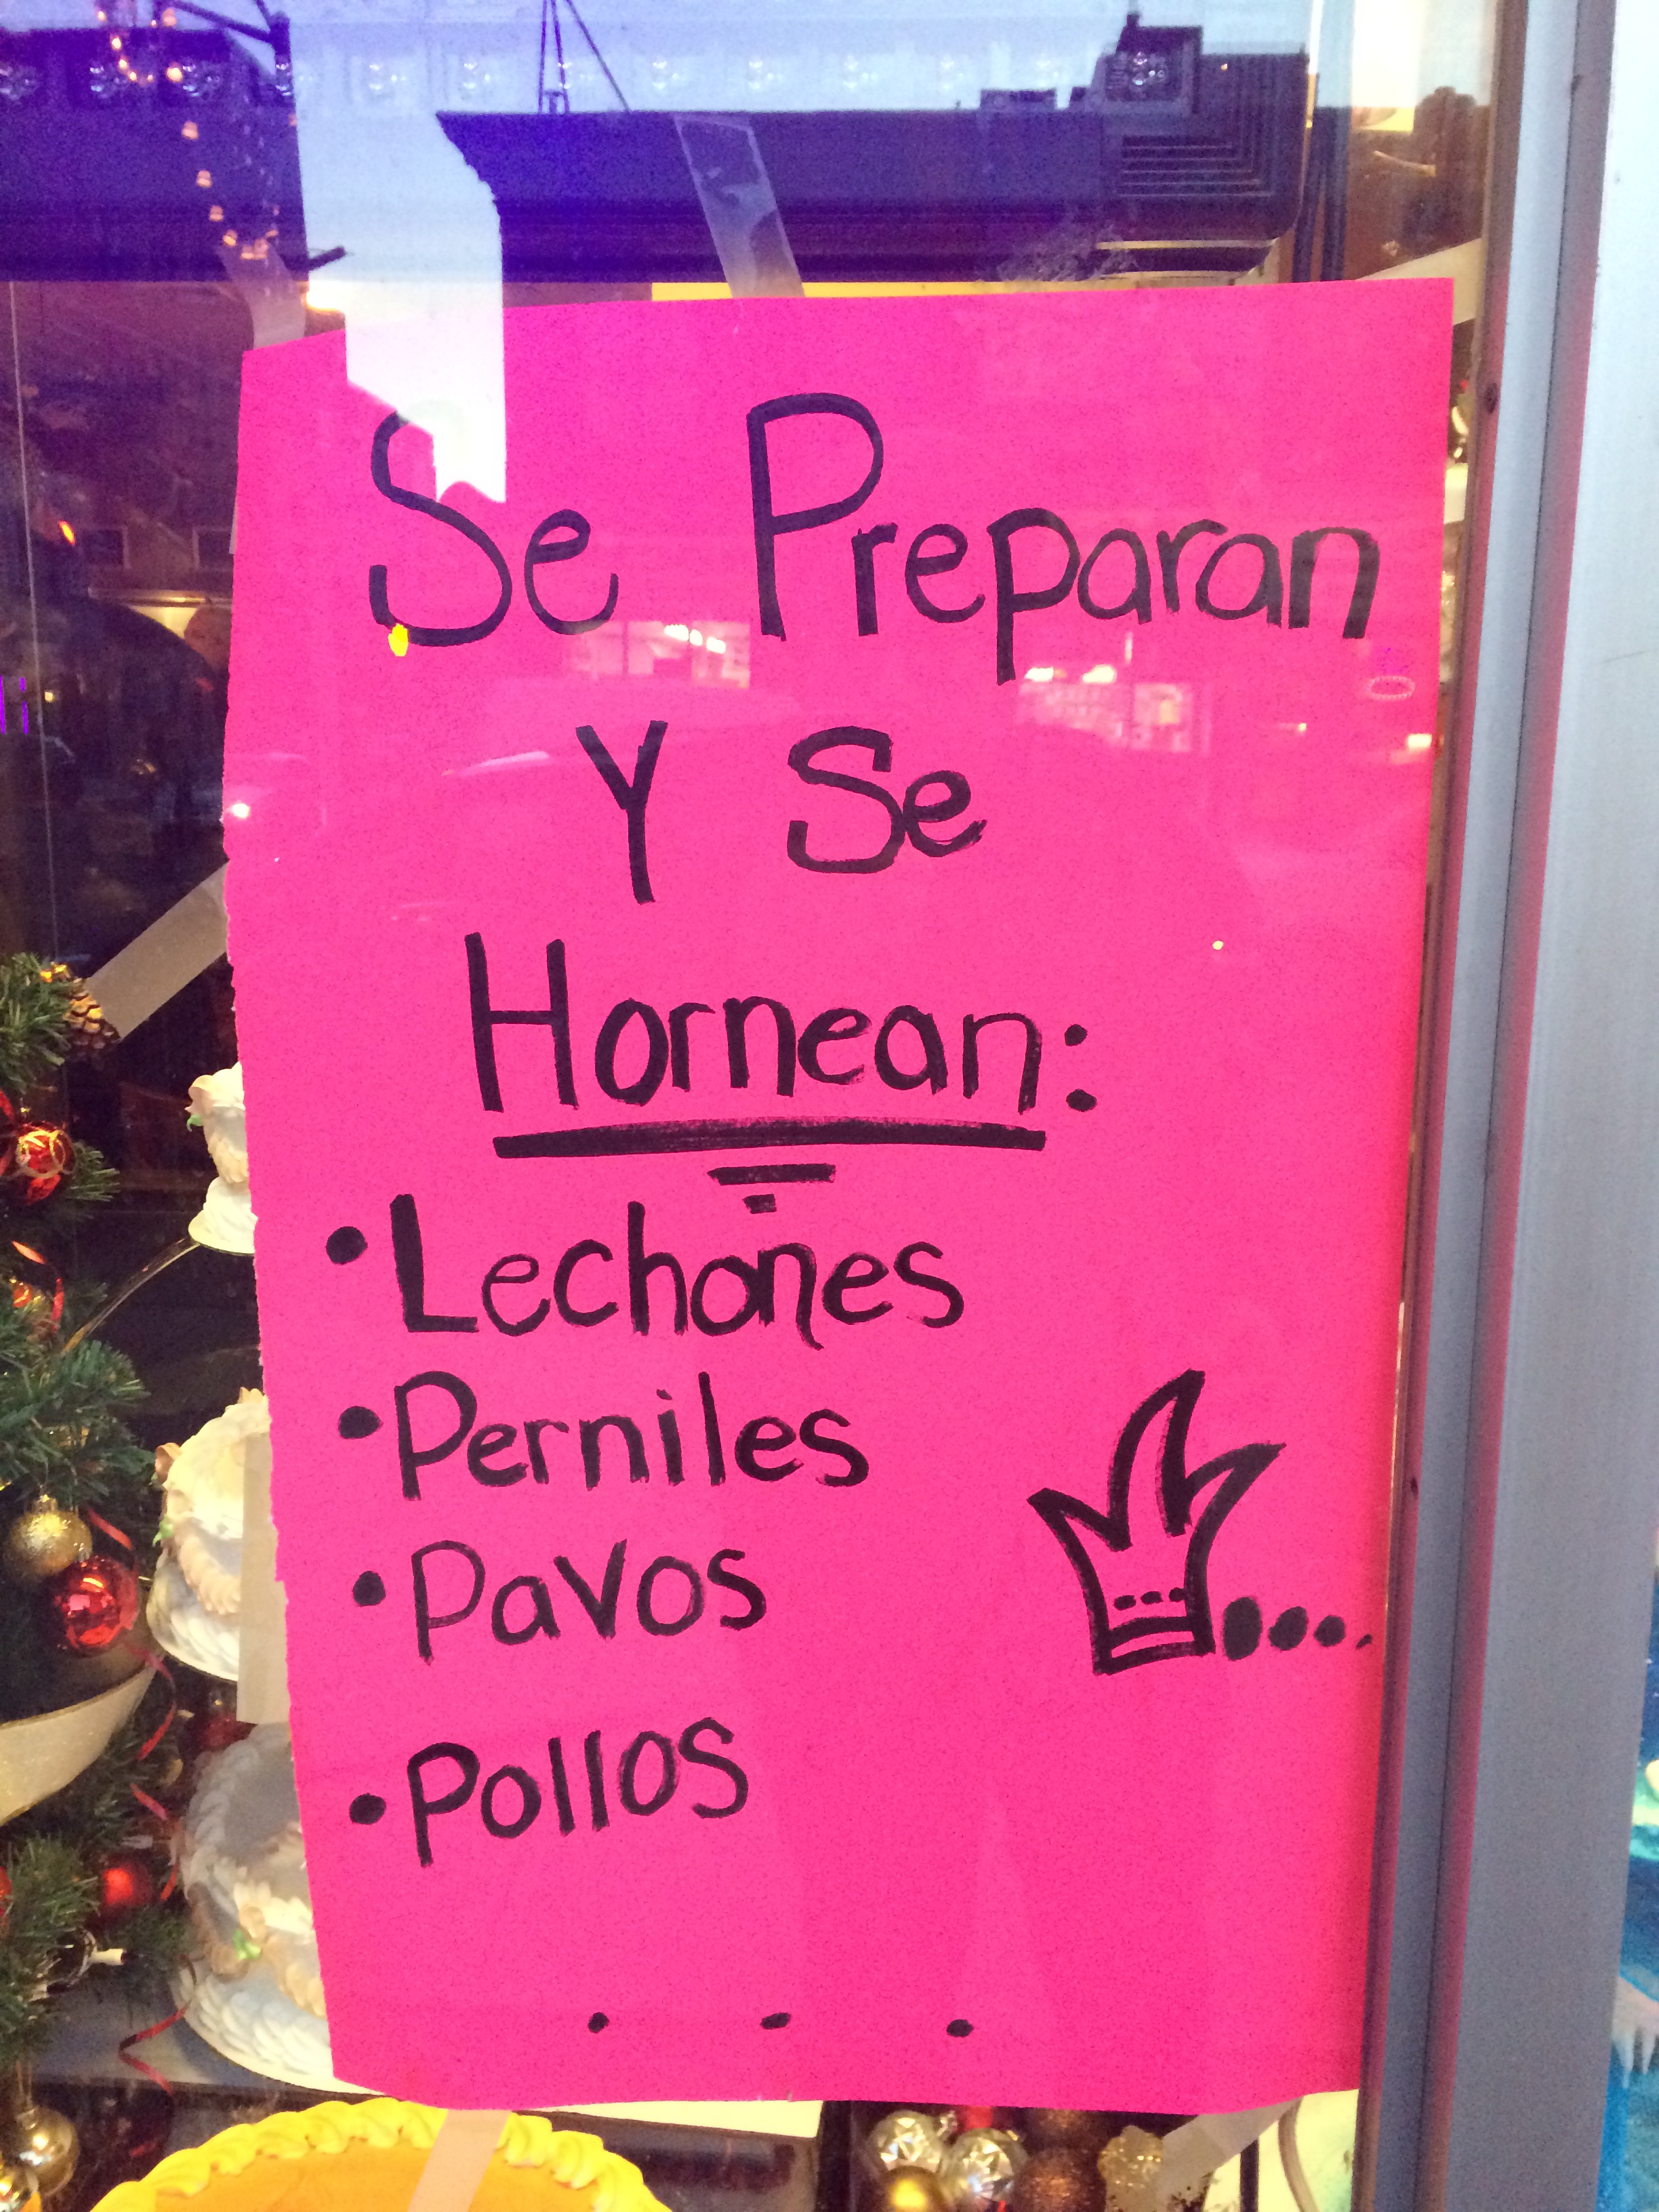 Se Preparan
Y Se
Hornean:
• Lechones
• Perniles
• Pavos
• Pollos
. . .